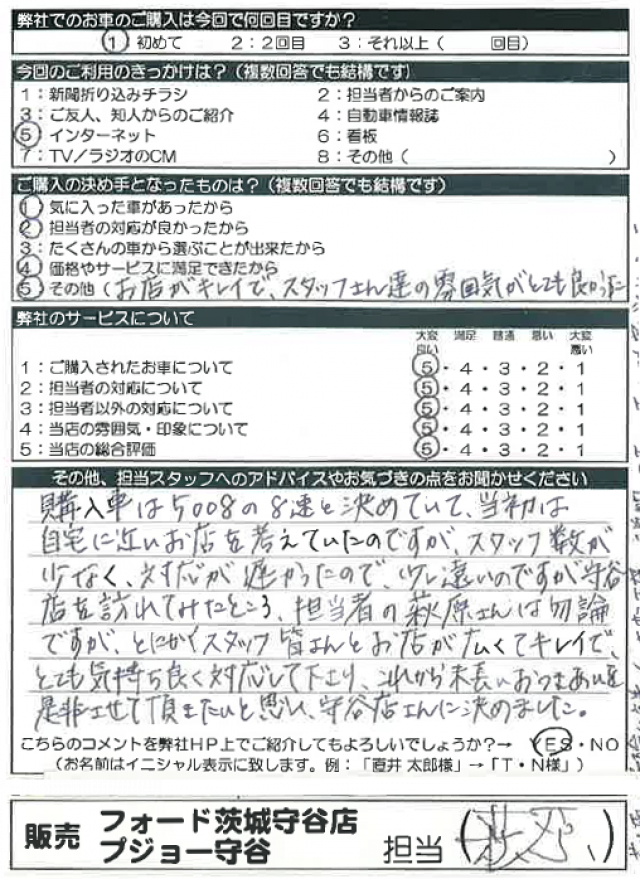 弊社でのお車のご購入は今回で何回目ですか？
1 初めて 2：2回目 3：それ以上（ 回目）
今回のご利用のきっかけは？（複数回答でも結構です）
1：新聞折り込みチラシ 2：担当者からのご案内
3：ご友人、知人からのご紹介 4：自動車情報誌
5 インターネット 6：看板
7：TV／ラジオのCM 8：その他（ ）
ご購入の決め手となったものは？（複数回答でも結構です）
1 気に入った車があったから
2 担当者の対応が良かったから
3：たくさんの車から選ぶことが出来たから
4 価格やサービスに満足できたから
5 その他（お店がキレイで、スタッフさん達の雰囲気がとても良かった
弊社のサービスについて
大変良い 満足 普通 悪い 大変悪い
1：ご購入されたお車について 5・4・3・2・1
2：担当者の対応について 5・4・3・2・1
3：担当者以外の対応について 5・4・3・2・1
4：当店の雰囲気・印象について 5・4・3・2・1
5：当店の総合評価 5・4・3・2・1
その他、担当スタッフへのアドバイスやお気づきの点をお聞かせください
購入車は5008の8速と決めていて、当初は
自宅に近いお店を考えていたのですが、スタッフ数が
少なく、対応が遅かったので、少し遠いのですが守谷
店を訪れてみたところ、担当者の萩原さんは勿論
ですが、とにかくスタッフ皆さんとお店が広くてキレイで、
とても気持ち良く対応して下さり、これから末長いおつきあいを
是非させて頂きたいと思い、守谷店さんに決めました。
こちらのコメントを弊社HP上でご紹介してもよろしいでしょうか？→ YES・NO
（お名前はイニシャル表示に致します。例：「直井 太郎様」→「T・N様」）
販売 フォード茨城守谷店
プジョー守谷 担当（ ）